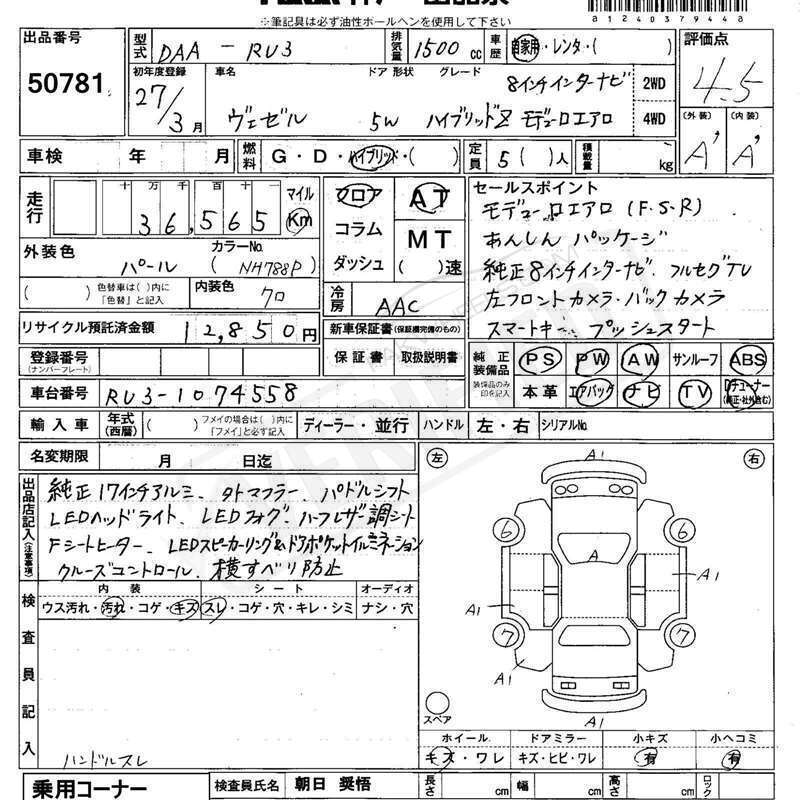 ※筆記具は必ず油性ボールペンを使用して下さい
81240379448
出品番号
50781
型式 DAA - RU3
排気量 1500 cc
車歴 自家用・レンタ・( )
評価点
4.5
初年度登録
27/3月
車名
ヴェゼル
ドア 形状 グレード
8インチインターナビ
5W ハイブリッドZ モデューロエアロ
2WD
4WD
(外装) (内装)
A' A'
車検 年 月
燃料 G・D・ハイブリッド・( )
定員 5( )人
積載量 kg
走行
十 万 千 百 十
36,565
マイル
Km
フロア
コラム
ダッシュ
AT
MT
( )速
セールスポイント
モデューロエアロ (F.S.R)
あんしんパッケージ
純正8インチインターナビ、フルセグTV
左フロントカメラ・バックカメラ
スマートキー、プッシュスタート
外装色
パール
カラーNo.
(NH788P)
( ) 色替車は( )内に「色替」と記入
内装色 クロ
冷房 AAC
リサイクル預託済金額 12,850円
新車保証書(保証欄完備のもの)
保証書 取扱説明書
登録番号
(ナンバープレート)
純正装備品
装備品のみ印を記入
PS PW AW サンルーフ ABS
本革 エアバッグ ナビ TV Dチューナー(純正・社外含む)
車台番号 RU3-1074558
輸入車 年式(西暦) ( ) フメイの場合は( )内に「フメイ」と必ず記入
ディーラー・並行 ハンドル 左・右 シリアルNo.
名変期限 月 日迄
出品店記入(注意事項)
純正17インチアルミ、タトマフラー、パドルシフト
LEDヘッドライト、LEDフォグ、ハーフレザー調シート
Fシートヒーター、LEDスピーカーリング&ドアポケットイルミネーション
クルーズコントロール、横すべり防止
検査員記入
内装 シート オーディオ
ウス汚れ・汚れ・コゲ・キズ スレ・コゲ・穴・キレ・シミ ナシ・穴
ハンドルスレ
左 右
A1
6 6
A
A1 A1
7 7
A1
A1
スペア
ホイール ドアミラー 小キズ 小ヘコミ
キズ・ワレ キズ・ヒビ・ワレ 有 有
乗用コーナー
検査員氏名 朝日 奨悟
長さ cm 幅 cm 高さ cm ロック